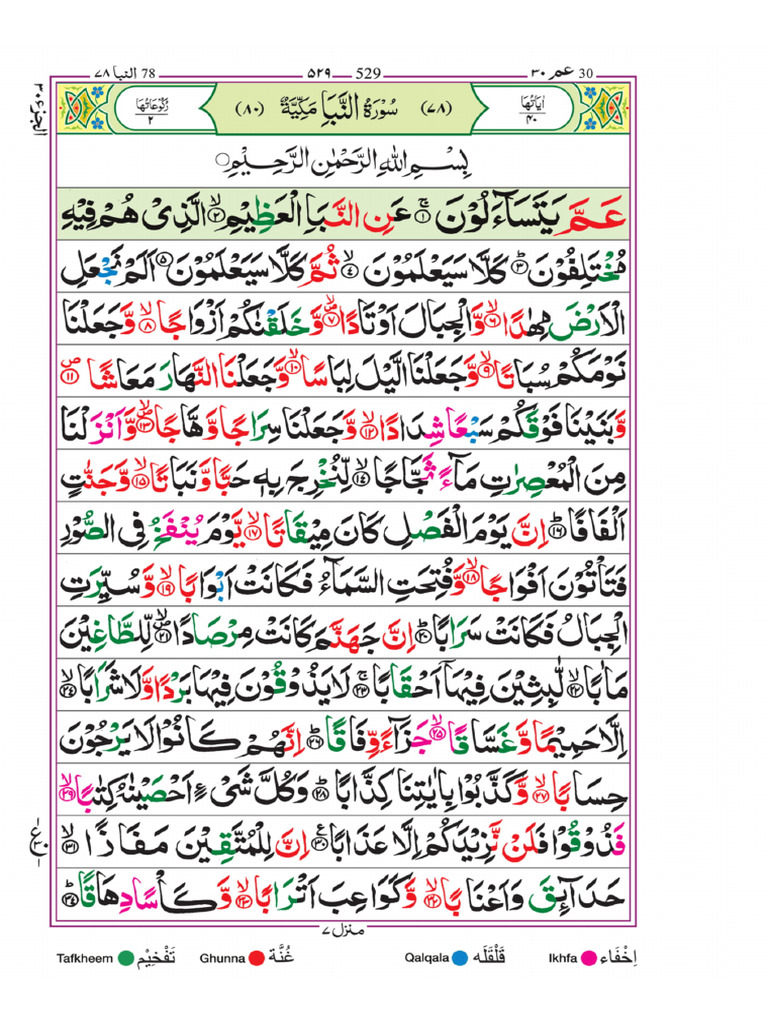 النبا ۷۸ 78 ۵۲۹ 529 عم ۳۰ 30
الجزء ۳۰
اٰیَاتُهَا ۴۰ (۷۸) سُوْرَةُ النَّبَاِ مَكِّیَّةٌ (۸۰) رُكُوْعَاتُهَا ۲
بِسْمِ اللّٰهِ الرَّحْمٰنِ الرَّحِیْمِ
عَمَّ یَتَسَآءَلُوْنَ ۚ﴿۱﴾ عَنِ النَّبَاِ الْعَظِیْمِ ۙ﴿۲﴾ الَّذِیْ هُمْ فِیْهِ
مُخْتَلِفُوْنَ ؕ﴿۳﴾ كَلَّا سَیَعْلَمُوْنَ ۙ﴿۴﴾ ثُمَّ كَلَّا سَیَعْلَمُوْنَ ﴿۵﴾ اَلَمْ نَجْعَلِ
الْاَرْضَ مِهٰدًا ۙ﴿۶﴾ وَّالْجِبَالَ اَوْتَادًا ۪ۙ﴿۷﴾ وَّخَلَقْنٰكُمْ اَزْوَاجًا ۙ﴿۸﴾ وَّجَعَلْنَا
نَوْمَكُمْ سُبَاتًا ۙ﴿۹﴾ وَّجَعَلْنَا الَّیْلَ لِبَاسًا ۙ﴿۱۰﴾ وَّجَعَلْنَا النَّهَارَ مَعَاشًا ۪﴿۱۱﴾
وَّبَنَیْنَا فَوْقَكُمْ سَبْعًا شِدَادًا ۙ﴿۱۲﴾ وَّجَعَلْنَا سِرَاجًا وَّهَّاجًا ۪ۙ﴿۱۳﴾ وَّاَنْزَلْنَا
مِنَ الْمُعْصِرٰتِ مَآءً ثَجَّاجًا ۙ﴿۱۴﴾ لِّنُخْرِجَ بِهٖ حَبًّا وَّنَبَاتًا ۙ﴿۱۵﴾ وَّجَنّٰتٍ
اَلْفَافًا ؕ﴿۱۶﴾ اِنَّ یَوْمَ الْفَصْلِ كَانَ مِیْقَاتًا ۙ﴿۱۷﴾ یَّوْمَ یُنْفَخُ فِی الصُّوْرِ
فَتَاْتُوْنَ اَفْوَاجًا ۙ﴿۱۸﴾ وَّفُتِحَتِ السَّمَآءُ فَكَانَتْ اَبْوَابًا ۙ﴿۱۹﴾ وَّسُیِّرَتِ
الْجِبَالُ فَكَانَتْ سَرَابًا ؕ﴿۲۰﴾ اِنَّ جَهَنَّمَ كَانَتْ مِرْصَادًا ۪ۙ﴿۲۱﴾ لِّلطَّاغِیْنَ
مَاٰبًا ۙ﴿۲۲﴾ لّٰبِثِیْنَ فِیْهَاۤ اَحْقَابًا ۚ﴿۲۳﴾ لَا یَذُوْقُوْنَ فِیْهَا بَرْدًا وَّلَا شَرَابًا ۙ﴿۲۴﴾
اِلَّا حَمِیْمًا وَّغَسَّاقًا ۙ﴿۲۵﴾ جَزَآءً وِّفَاقًا ؕ﴿۲۶﴾ اِنَّهُمْ كَانُوْا لَا یَرْجُوْنَ
حِسَابًا ۙ﴿۲۷﴾ وَّكَذَّبُوْا بِاٰیٰتِنَا كِذَّابًا ؕ﴿۲۸﴾ وَكُلَّ شَیْءٍ اَحْصَیْنٰهُ كِتٰبًا ۙ﴿۲۹﴾
فَذُوْقُوْا فَلَنْ نَّزِیْدَكُمْ اِلَّا عَذَابًا ﴿۳۰﴾ اِنَّ لِلْمُتَّقِیْنَ مَفَازًا ۙ﴿۳۱﴾
حَدَآئِقَ وَاَعْنَابًا ۙ﴿۳۲﴾ وَّكَوَاعِبَ اَتْرَابًا ۙ﴿۳۳﴾ وَّكَاْسًا دِهَاقًا ؕ﴿۳۴﴾
منزل ۷
Tafkheem تَفْخِیْم Ghunna غُنَّة Qalqala قَلْقَلَه Ikhfa اِخْفَاء